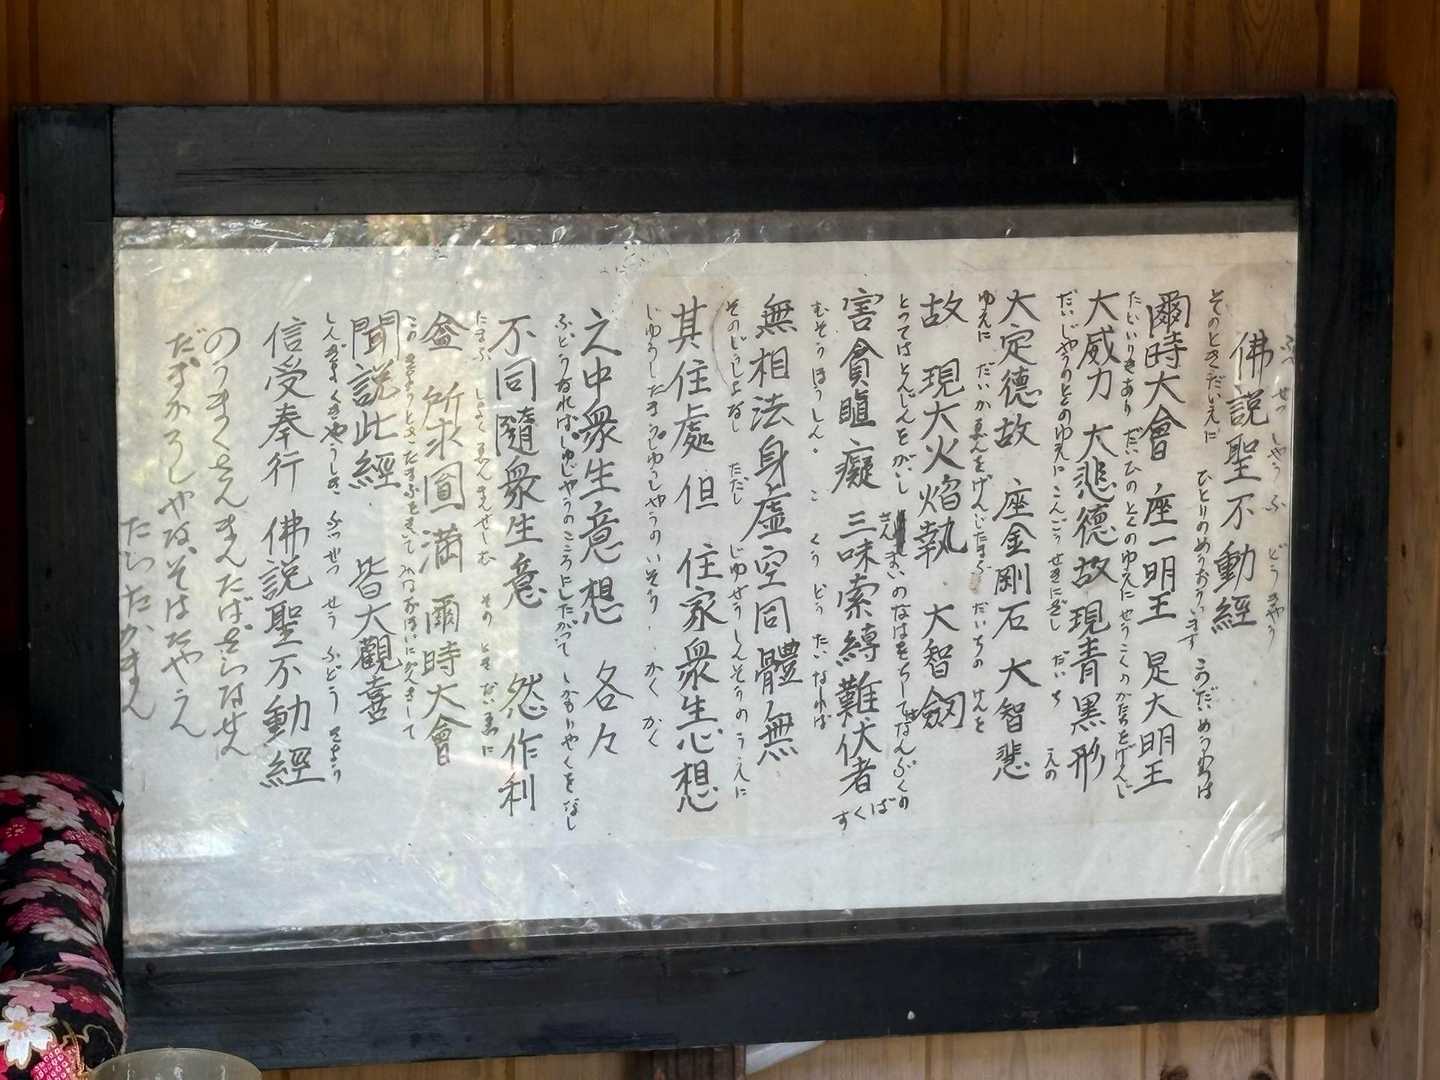 佛説聖不動經
ぶっせつしやうふどうきやう
爾時大會　座一明王　是大明王
そのときだいえに　ひとりのめうおういます　このだいめうわうは
大威力　大悲德故　現青黒形
たいいりきあり　だいひのとくのゆえに　せうこくのかたちをげんじ
大定德故　座金剛石　大智悲
だいじやうのとくのゆえに　こんごうせきにざし　だいち　えの
故　現大火焔執　大智劔
ゆえに　だいかゑんをげんじたまう　だいちの　けんを
害貪瞋癡　三味索縛難伏者
とつてはとんじんをがいし　さんまいのなはをもしてなんぶくの　すくば
無相法身虚空同體無
むそうほうしん。　こくう　どうたいなれば
其住處　但　住家衆生心想
そのじうしよなし　ただし　じゆせうしんそうのうえに
之中衆生意想　各々
じゆうしたまう　じゆうしやうのいそう。　かくかく
不同隨衆生意　然作利
ふどうなれば。しゆじやうのこころにしたがって　しかもりやくをなし
盒　所求圓満　爾時大會
たまふ　しよぐゑんまんせしむ　そのときだいゑに
聞説此經　皆大觀喜
このきようとききたまふをきいて　みなおほいにかんきして
信受奉行　佛説聖不動經
しんぎようくぎやうしき　ぶつせつせうふどうきよう
のうまくさんまんだばざらなせん
だまかろしやな、そはたやうん
たらたかまん